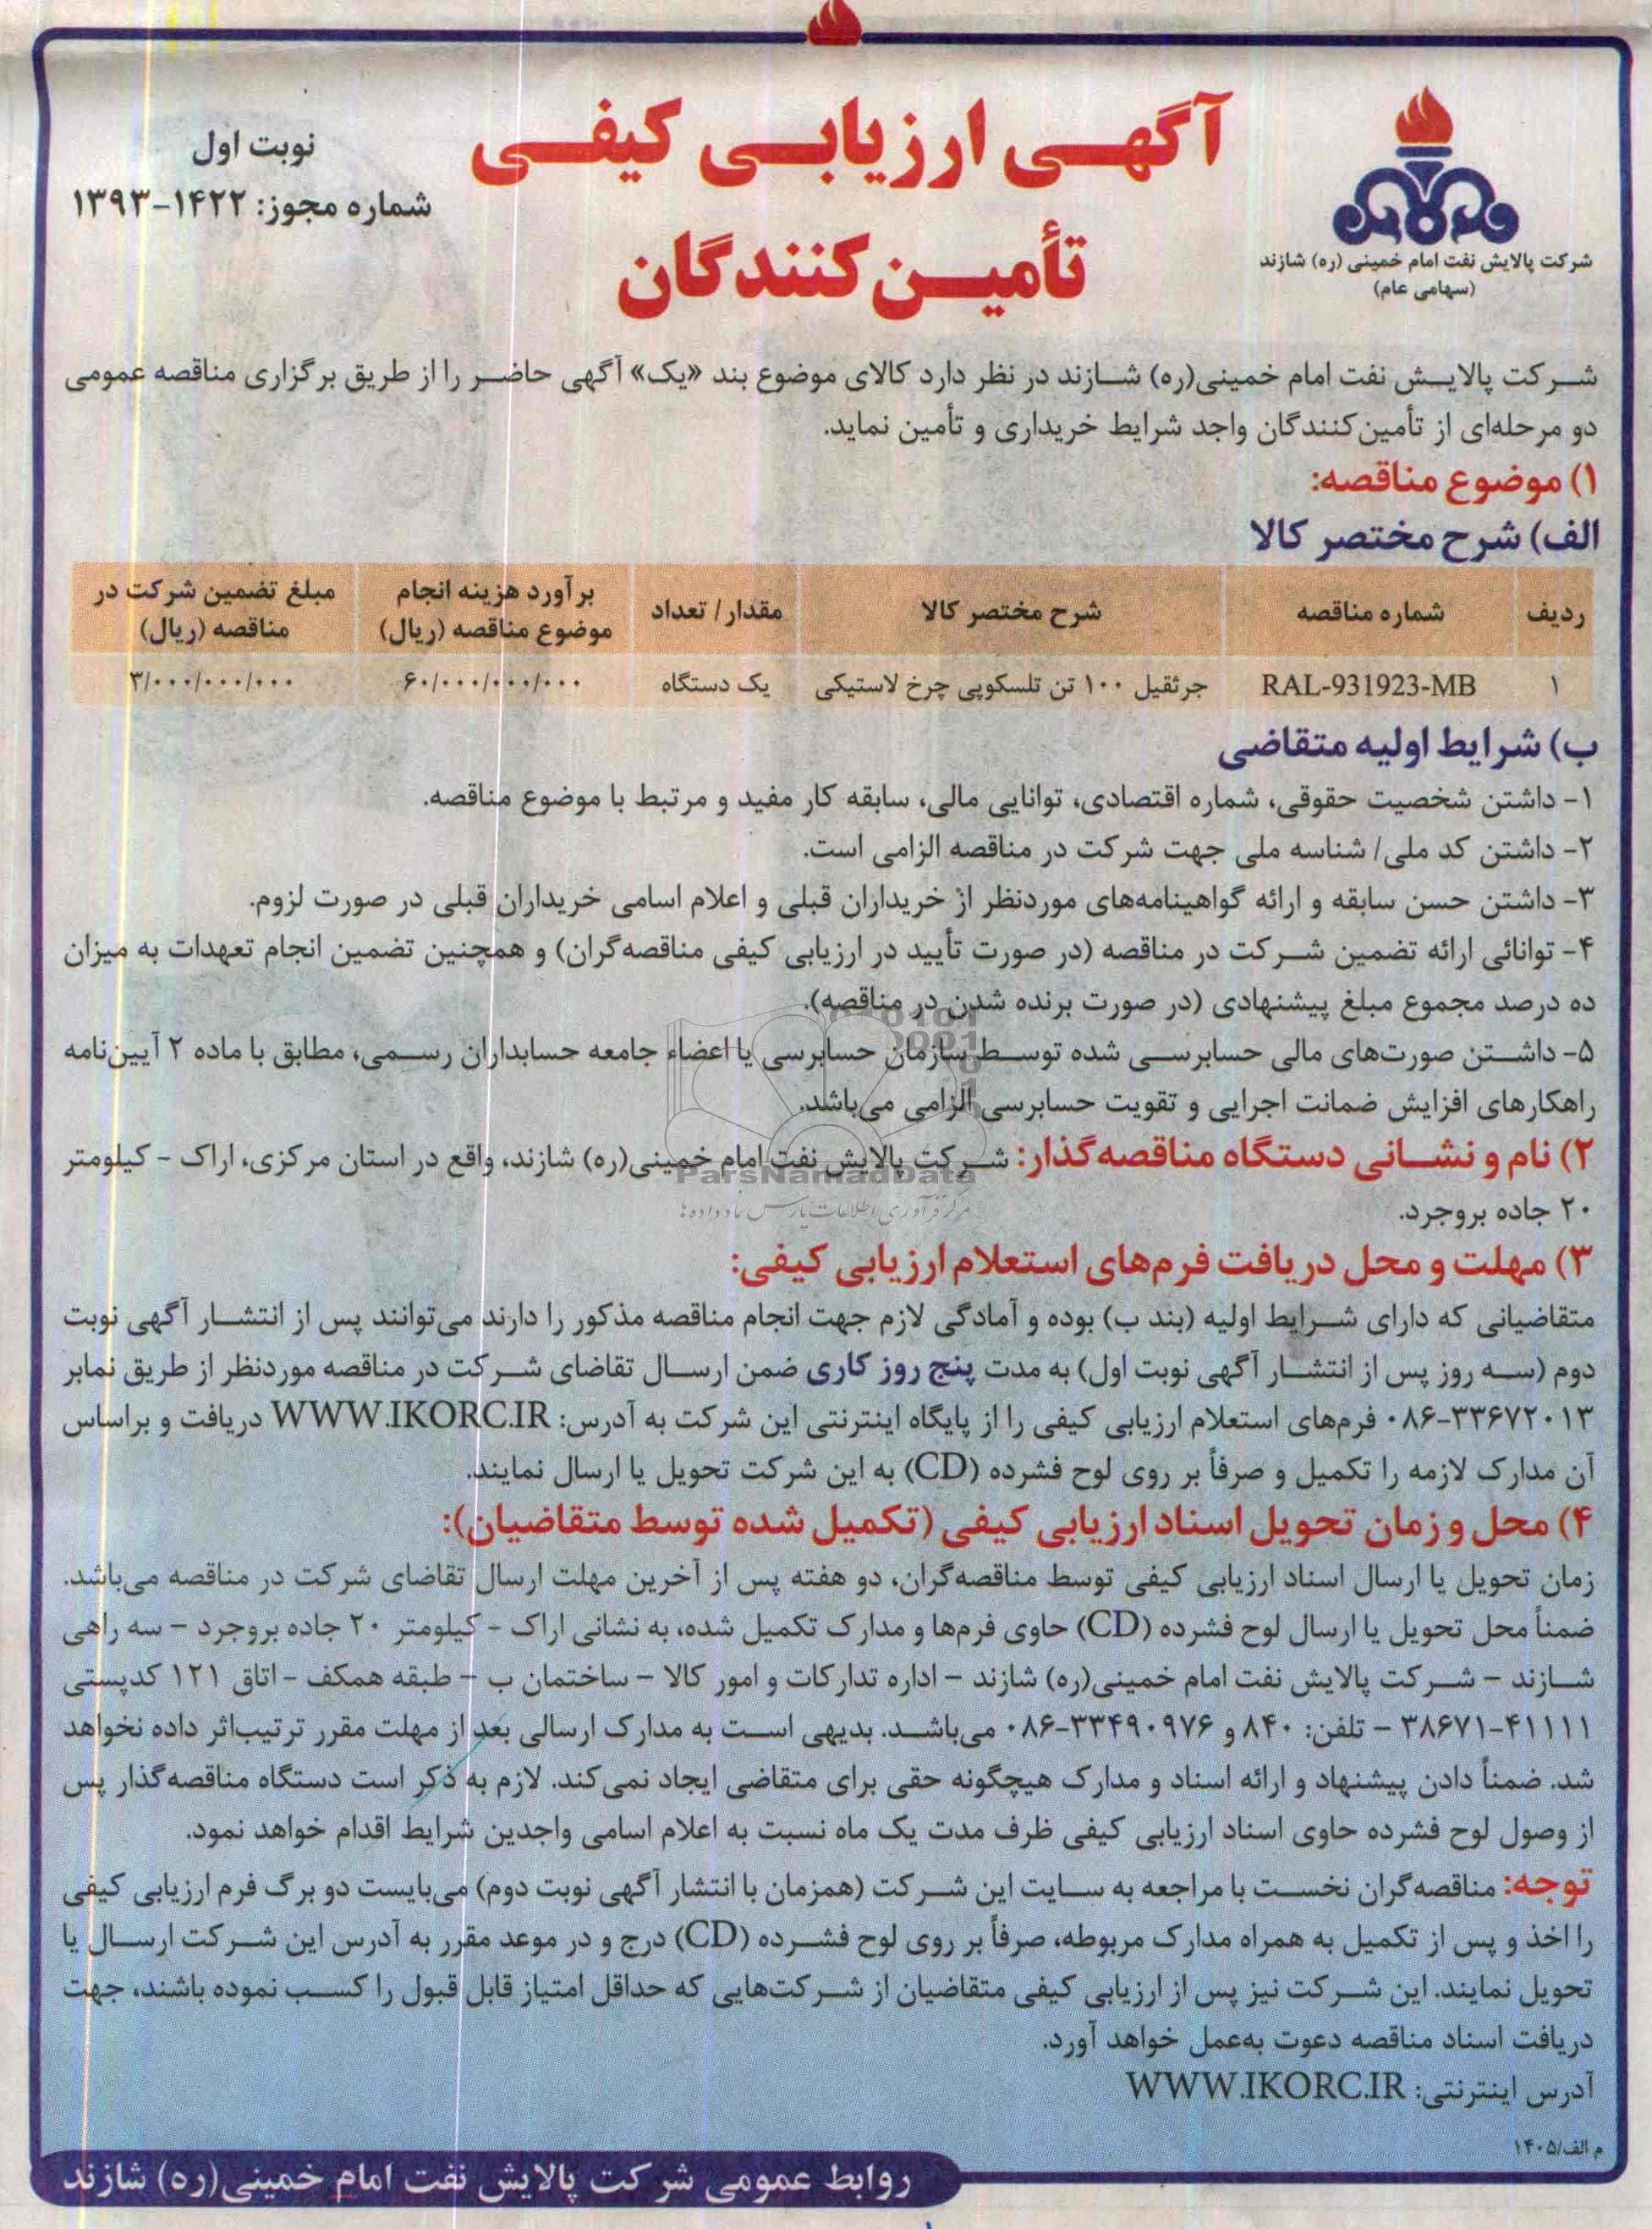 آگهی ارزیابی کیفی
تأمین کنندگان
نوبت اول
شماره مجوز: ۱۴۲۲-۱۳۹۳
شرکت پالایش نفت امام خمینی (ره) شازند
(سهامی عام)
شرکت پالایش نفت امام خمینی(ره) شازند در نظر دارد کالای موضوع بند «یک» آگهی حاضر را از طریق برگزاری مناقصه عمومی
دو مرحله‌ای از تأمین‌کنندگان واجد شرایط خریداری و تأمین نماید.
۱) موضوع مناقصه:
الف) شرح مختصر کالا
ردیف شماره مناقصه شرح مختصر کالا مقدار/ تعداد برآورد هزینه انجام موضوع مناقصه (ریال) مبلغ تضمین شرکت در مناقصه (ریال)
۱ RAL-931923-MB جرثقیل ۱۰۰ تن تلسکوپی چرخ لاستیکی یک دستگاه ۶۰/۰۰۰/۰۰۰/۰۰۰ ۳/۰۰۰/۰۰۰/۰۰۰
ب) شرایط اولیه متقاضی
۱- داشتن شخصیت حقوقی، شماره اقتصادی، توانایی مالی، سابقه کار مفید و مرتبط با موضوع مناقصه.
۲- داشتن کد ملی/ شناسه ملی جهت شرکت در مناقصه الزامی است.
۳- داشتن حسن سابقه و ارائه گواهینامه‌های موردنظر از خریداران قبلی و اعلام اسامی خریداران قبلی در صورت لزوم.
۴- توانائی ارائه تضمین شرکت در مناقصه (در صورت تأیید در ارزیابی کیفی مناقصه‌گران) و همچنین تضمین انجام تعهدات به میزان
ده درصد مجموع مبلغ پیشنهادی (در صورت برنده شدن در مناقصه).
۵- داشتن صورت‌های مالی حسابرسی شده توسط سازمان حسابرسی یا اعضاء جامعه حسابداران رسمی، مطابق با ماده ۲ آیین‌نامه
راهکارهای افزایش ضمانت اجرایی و تقویت حسابرسی الزامی می‌باشد.
۲) نام و نشانی دستگاه مناقصه‌گذار: شرکت پالایش نفت امام خمینی(ره) شازند، واقع در استان مرکزی، اراک - کیلومتر
۲۰ جاده بروجرد.
ParsNamadData
مرکز فرآوری اطلاعات پارس نماد داده‌ها
۳) مهلت و محل دریافت فرم‌های استعلام ارزیابی کیفی:
متقاضیانی که دارای شرایط اولیه (بند ب) بوده و آمادگی لازم جهت انجام مناقصه مذکور را دارند می‌توانند پس از انتشار آگهی نوبت
دوم (سه روز پس از انتشار آگهی نوبت اول) به مدت پنج روز کاری ضمن ارسال تقاضای شرکت در مناقصه موردنظر از طریق نمابر
۰۸۶-۳۳۶۷۲۰۱۳ فرم‌های استعلام ارزیابی کیفی را از پایگاه اینترنتی این شرکت به آدرس: WWW.IKORC.IR دریافت و براساس
آن مدارک لازمه را تکمیل و صرفاً بر روی لوح فشرده (CD) به این شرکت تحویل یا ارسال نمایند.
۴) محل و زمان تحویل اسناد ارزیابی کیفی (تکمیل شده توسط متقاضیان):
زمان تحویل یا ارسال اسناد ارزیابی کیفی توسط مناقصه‌گران، دو هفته پس از آخرین مهلت ارسال تقاضای شرکت در مناقصه می‌باشد.
ضمناً محل تحویل یا ارسال لوح فشرده (CD) حاوی فرم‌ها و مدارک تکمیل شده، به نشانی اراک - کیلومتر ۲۰ جاده بروجرد - سه راهی
شازند - شرکت پالایش نفت امام خمینی(ره) شازند - اداره تدارکات و امور کالا - ساختمان ب - طبقه همکف - اتاق ۱۲۱ کدپستی
۳۸۶۷۱-۴۱۱۱۱ - تلفن: ۸۴۰ و ۰۸۶-۳۳۴۹۰۹۷۶ می‌باشد. بدیهی است به مدارک ارسالی بعد از مهلت مقرر ترتیب‌اثر داده نخواهد
شد. ضمناً دادن پیشنهاد و ارائه اسناد و مدارک هیچگونه حقی برای متقاضی ایجاد نمی‌کند. لازم به ذکر است دستگاه مناقصه‌گذار پس
از وصول لوح فشرده حاوی اسناد ارزیابی کیفی ظرف مدت یک ماه نسبت به اعلام اسامی واجدین شرایط اقدام خواهد نمود.
توجه: مناقصه‌گران نخست با مراجعه به سایت این شرکت (همزمان با انتشار آگهی نوبت دوم) می‌بایست دو برگ فرم ارزیابی کیفی
را اخذ و پس از تکمیل به همراه مدارک مربوطه، صرفاً بر روی لوح فشرده (CD) درج و در موعد مقرر به آدرس این شرکت ارسال یا
تحویل نمایند. این شرکت نیز پس از ارزیابی کیفی متقاضیان از شرکت‌هایی که حداقل امتیاز قابل قبول را کسب نموده باشند، جهت
دریافت اسناد مناقصه دعوت به‌عمل خواهد آورد.
آدرس اینترنتی: WWW.IKORC.IR
م الف/۱۴۰۵
روابط عمومی شرکت پالایش نفت امام خمینی(ره) شازند